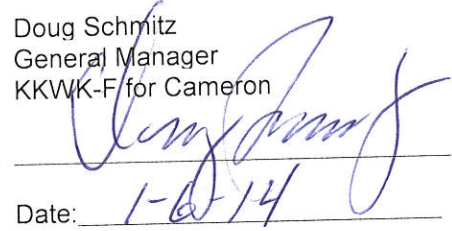 Doug Schmitz
General Manager
KKWK-F for Cameron
Date: 1-6-14